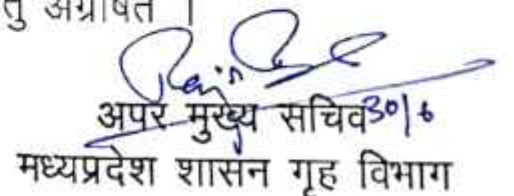 तु अग्रेषित ।
अपर मुख्य सचिव 30/6
मध्यप्रदेश शासन गृह विभाग